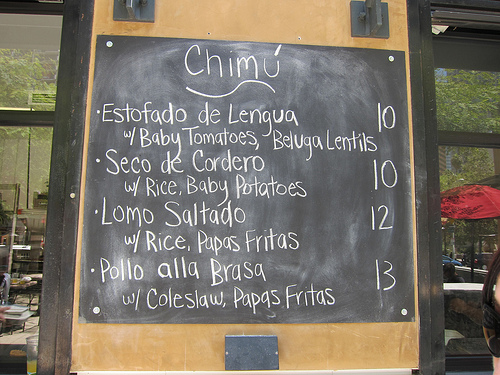 Chimú
· Estofado de Lengua 10
w/ Baby Tomatoes, Beluga Lentils
· Seco de Cordero 10
w/ Rice, Baby Potatoes
· Lomo Saltado 12
w/ Rice, Papas Fritas
· Pollo alla Brasa 13
w/ Coleslaw, Papas Fritas